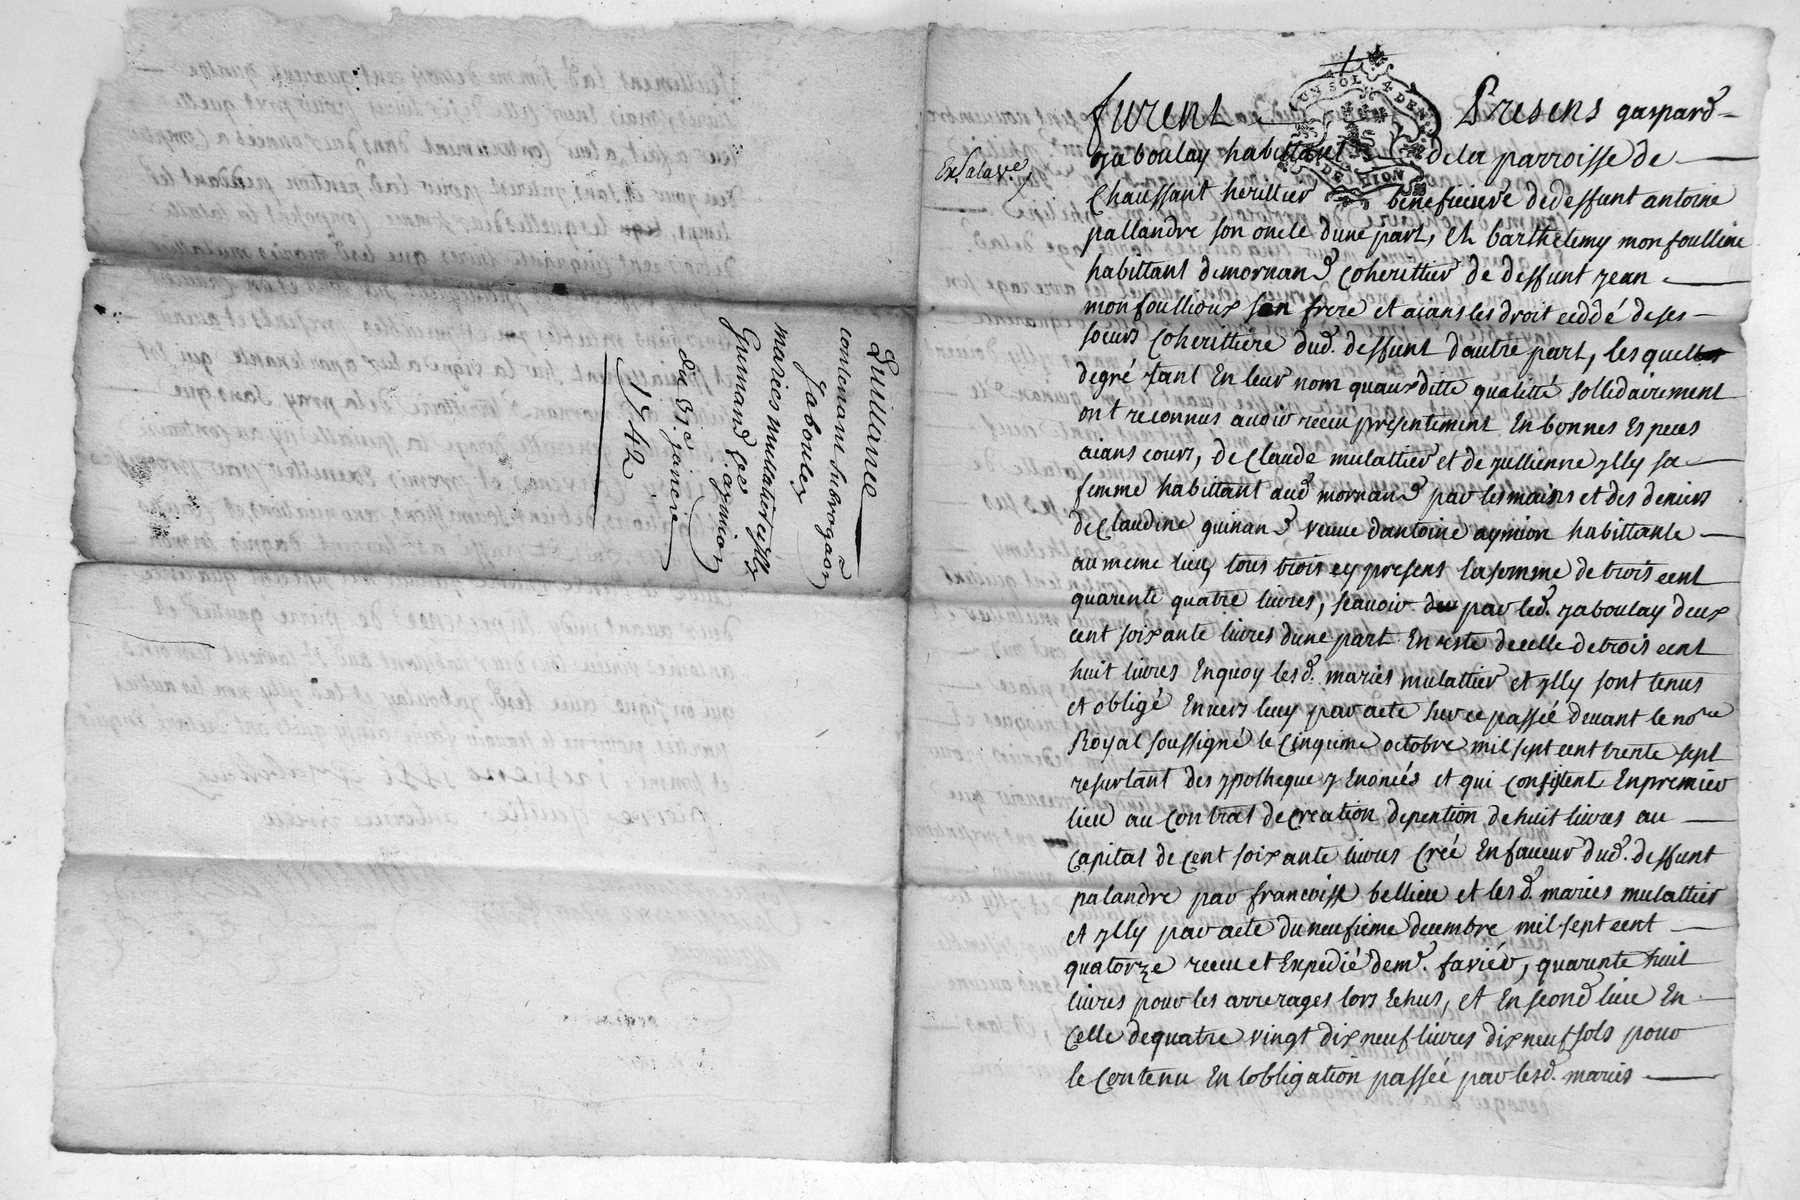 Quittance
contenant subrogãon
Jaboulez
mariés mulatier et ylly
Guinand Vve aymion
du 31e janvier
1742
UN SOL 4 DEN
DE LION
furent Presens gaspard
Jaboulay habittant de la parroisse de
Chaussant herittier beneficiere de deffunt antoine
pallandre son oncle d'une part, Et barthelemy monfoullioux
habittant de mornand coherittier de deffunt Jean
monfoullioux son frere et aians les droit ceddé de ses
soeurs Coherittiere dud. deffunt d'autre part, lesquels
degré tant En leur nom quaux ditte qualitté sollidairement
ont reconnus avoir receu presentement En bonnes Especes
aians cours, de Claude mulattier et de Jullienne ylly sa
femme habittant aud mornand par les mains et des deniers
de Claudine guinand veuve dantoine aymion habittante
au meme lieu, tous trois cy presens la somme de trois cent
quarente quatre livres, scavoir par led. Jaboulay deux
cent soixante livres dune part En reste de celle de trois cent
huit livres En quoy lesd. mariés mulattier et ylly sont tenus
et obligé Envers luy par acte sur ce passéé devant le nore
Royal soussigné le cinquime octobre mil sept cent trente sept
resurtant des ypotheque y Enoncés et qui consistent En premier
lieu au contrat de creation de pention de huit livres au
capital de cent soixante livres créé En faveur dud. deffunt
palandre par francoise bellieu et lesd. mariés mulattier
et ylly par acte du neufieme decembre mil sept cent
quatorze receu et Expedié de me. favier, quarente huit
livres pour les arrerages lors Echus, et En second lieu En
celle de quatre vingt dix neuf livres dix neuf sols pour
le contenu En lobligation passéé par lesd. mariés